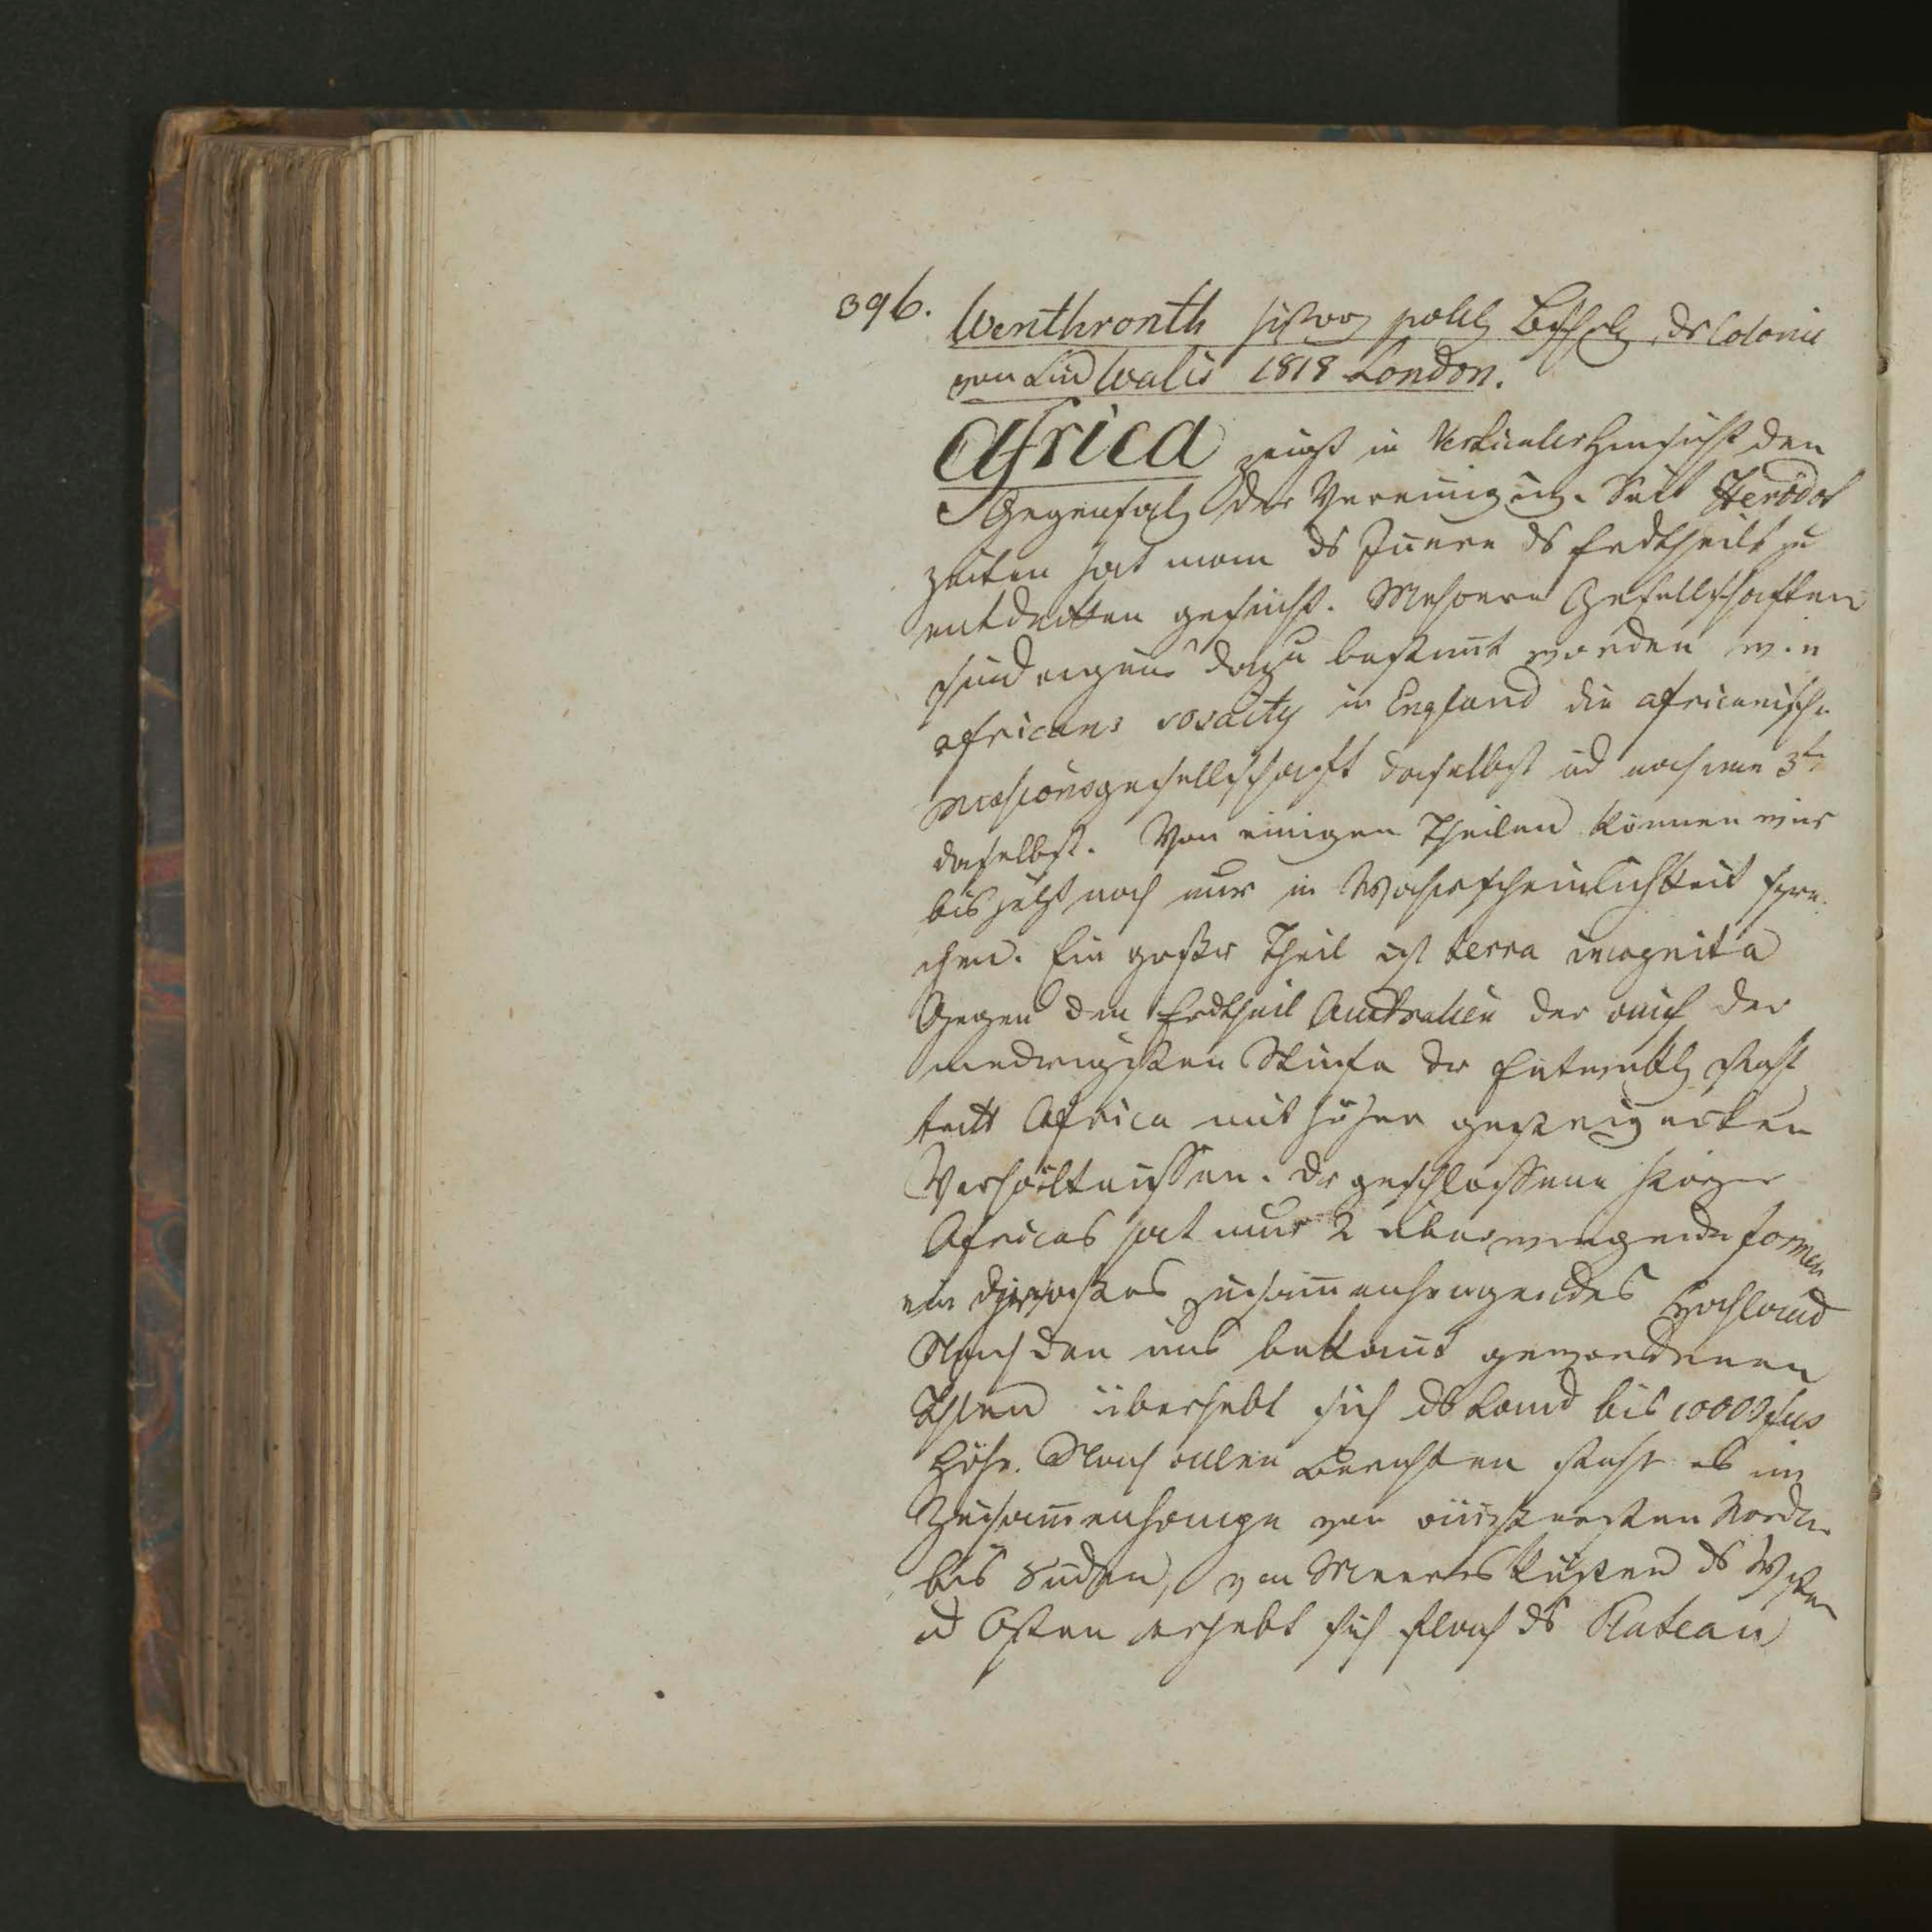 396.
Wenthronth histor politz Beschrbg ds Colonie
von Süd Walis 1818 London.
Africa zeigt in Verticaler Hinsicht den
Gegensatz der Vereinigung. Seit Herodot
zeiten hat man ds Innere ds Erdtheils zu
entdekken gesucht. Mehrere Gesellschaften
sind eigens dazu bestimt worden wie
africans sosaity in England die africanische
missionsgesellschaft daselbst ud noch eine 3te
daselbst. Von einigen Theilen können wir
bis jetzt noch nur in Wahrscheinlichkeit spre
chen. Ein großer Theil ist terra incognita
Gegen den Erdtheil Australien der auf der
niedrigsten Stufe der Entwiklg steht
tritt Africa mit höher gesteigerten
Verhältnissen. Der geschlossene Körper
Africas hat nur 2 überwiegende formen
ein zusammenhengendes Hochland
Nach den uns bekannt gewordenen
Theilen überhebt sich ds Land bis 10000 fus
Höhe. Nach allen Berichten steht es im
Zusammenhange von äussersten Norden
bis Süden, von Meeresküsten ds Westen
ud Osten erhebt sich flach ds Plateau